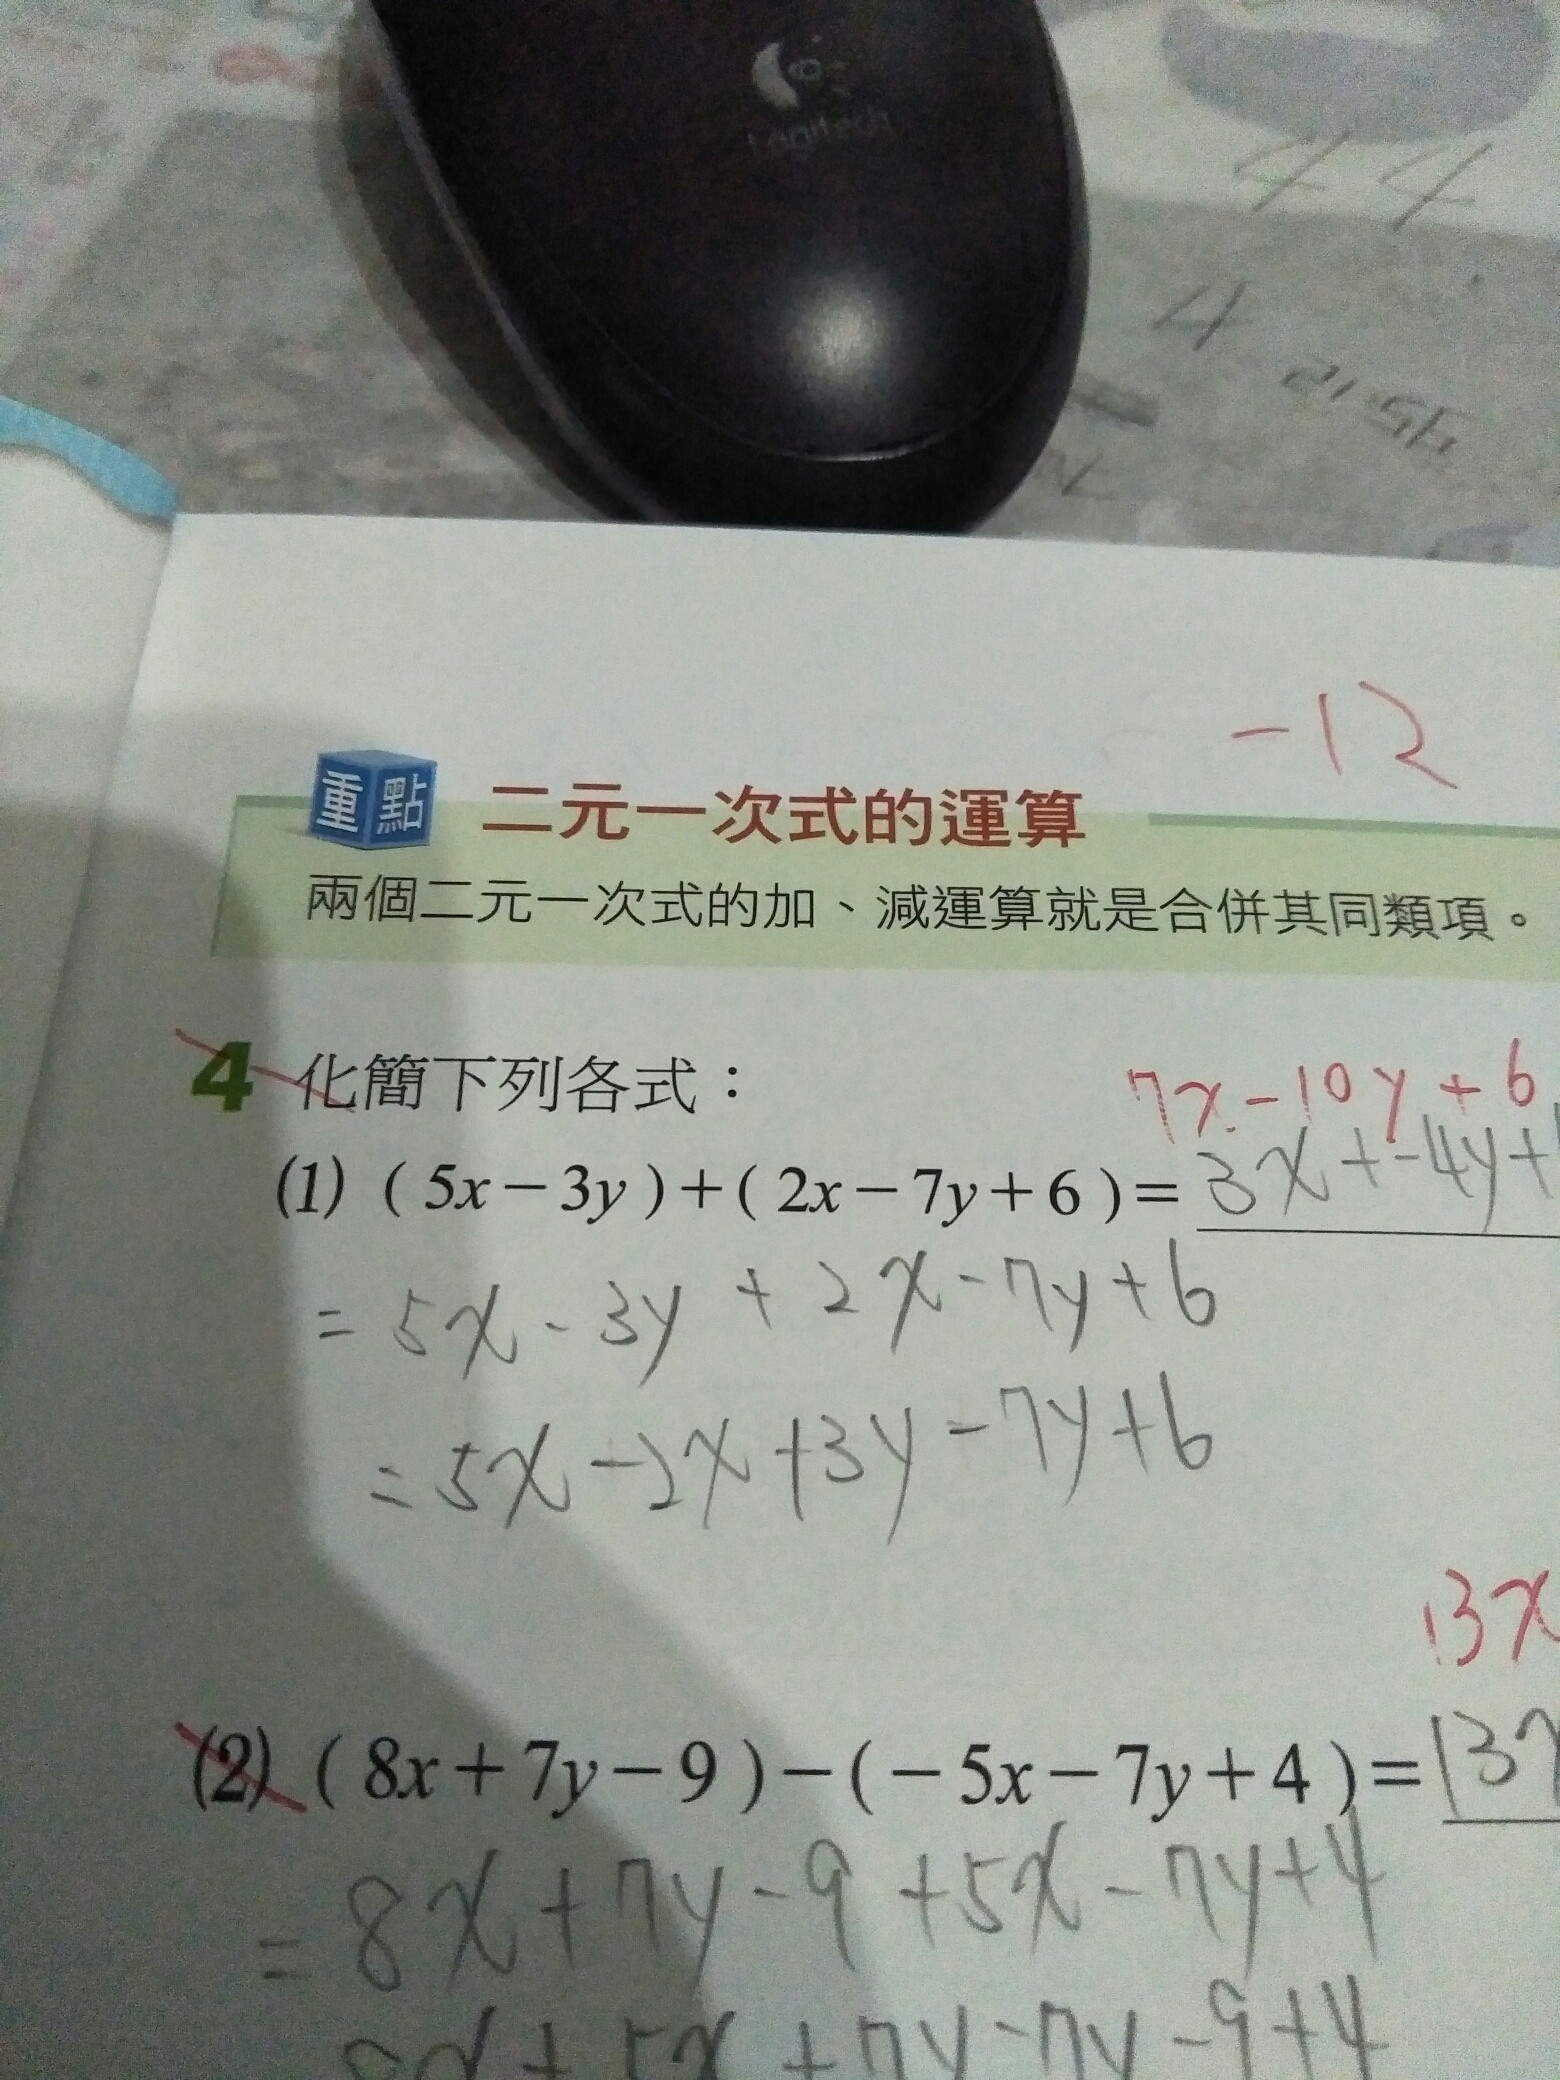 Logitech
44
4
-12
重點 二元一次式的運算
兩個二元一次式的加、減運算就是合併其同類項。
4 化簡下列各式：
7x-10y+6
(1) (5x-3y)+(2x-7y+6)= 3x+-4y+
=5x-3y+2x-7y+6
=5x-2x+3y-7y+6
13x
(2) (8x+7y-9)-(-5x-7y+4)= 13x
=8x+7y-9+5x-7y+4
8x+5x+7y-7y-9+4